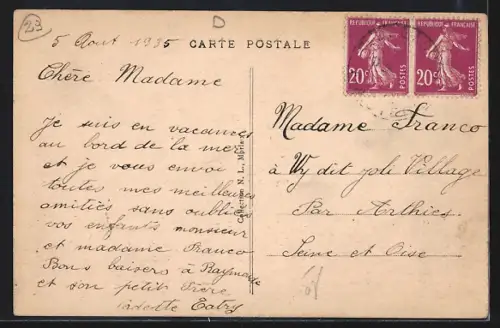 23
D
5 Aout 1935 CARTE POSTALE
20c POSTES
20c POSTES
Chère Madame
Je suis en vacances
au bord de la mer
et je vous envoi
toutes mes meilleures
amitiés sans oublier
vos enfants monsieur
et madame Franco
Bons baisers à Raymonde
et son petit frère
Collection N. L.,
Madame Franco
à Wy dit joli Village
Par Arthies
Seine et Oise